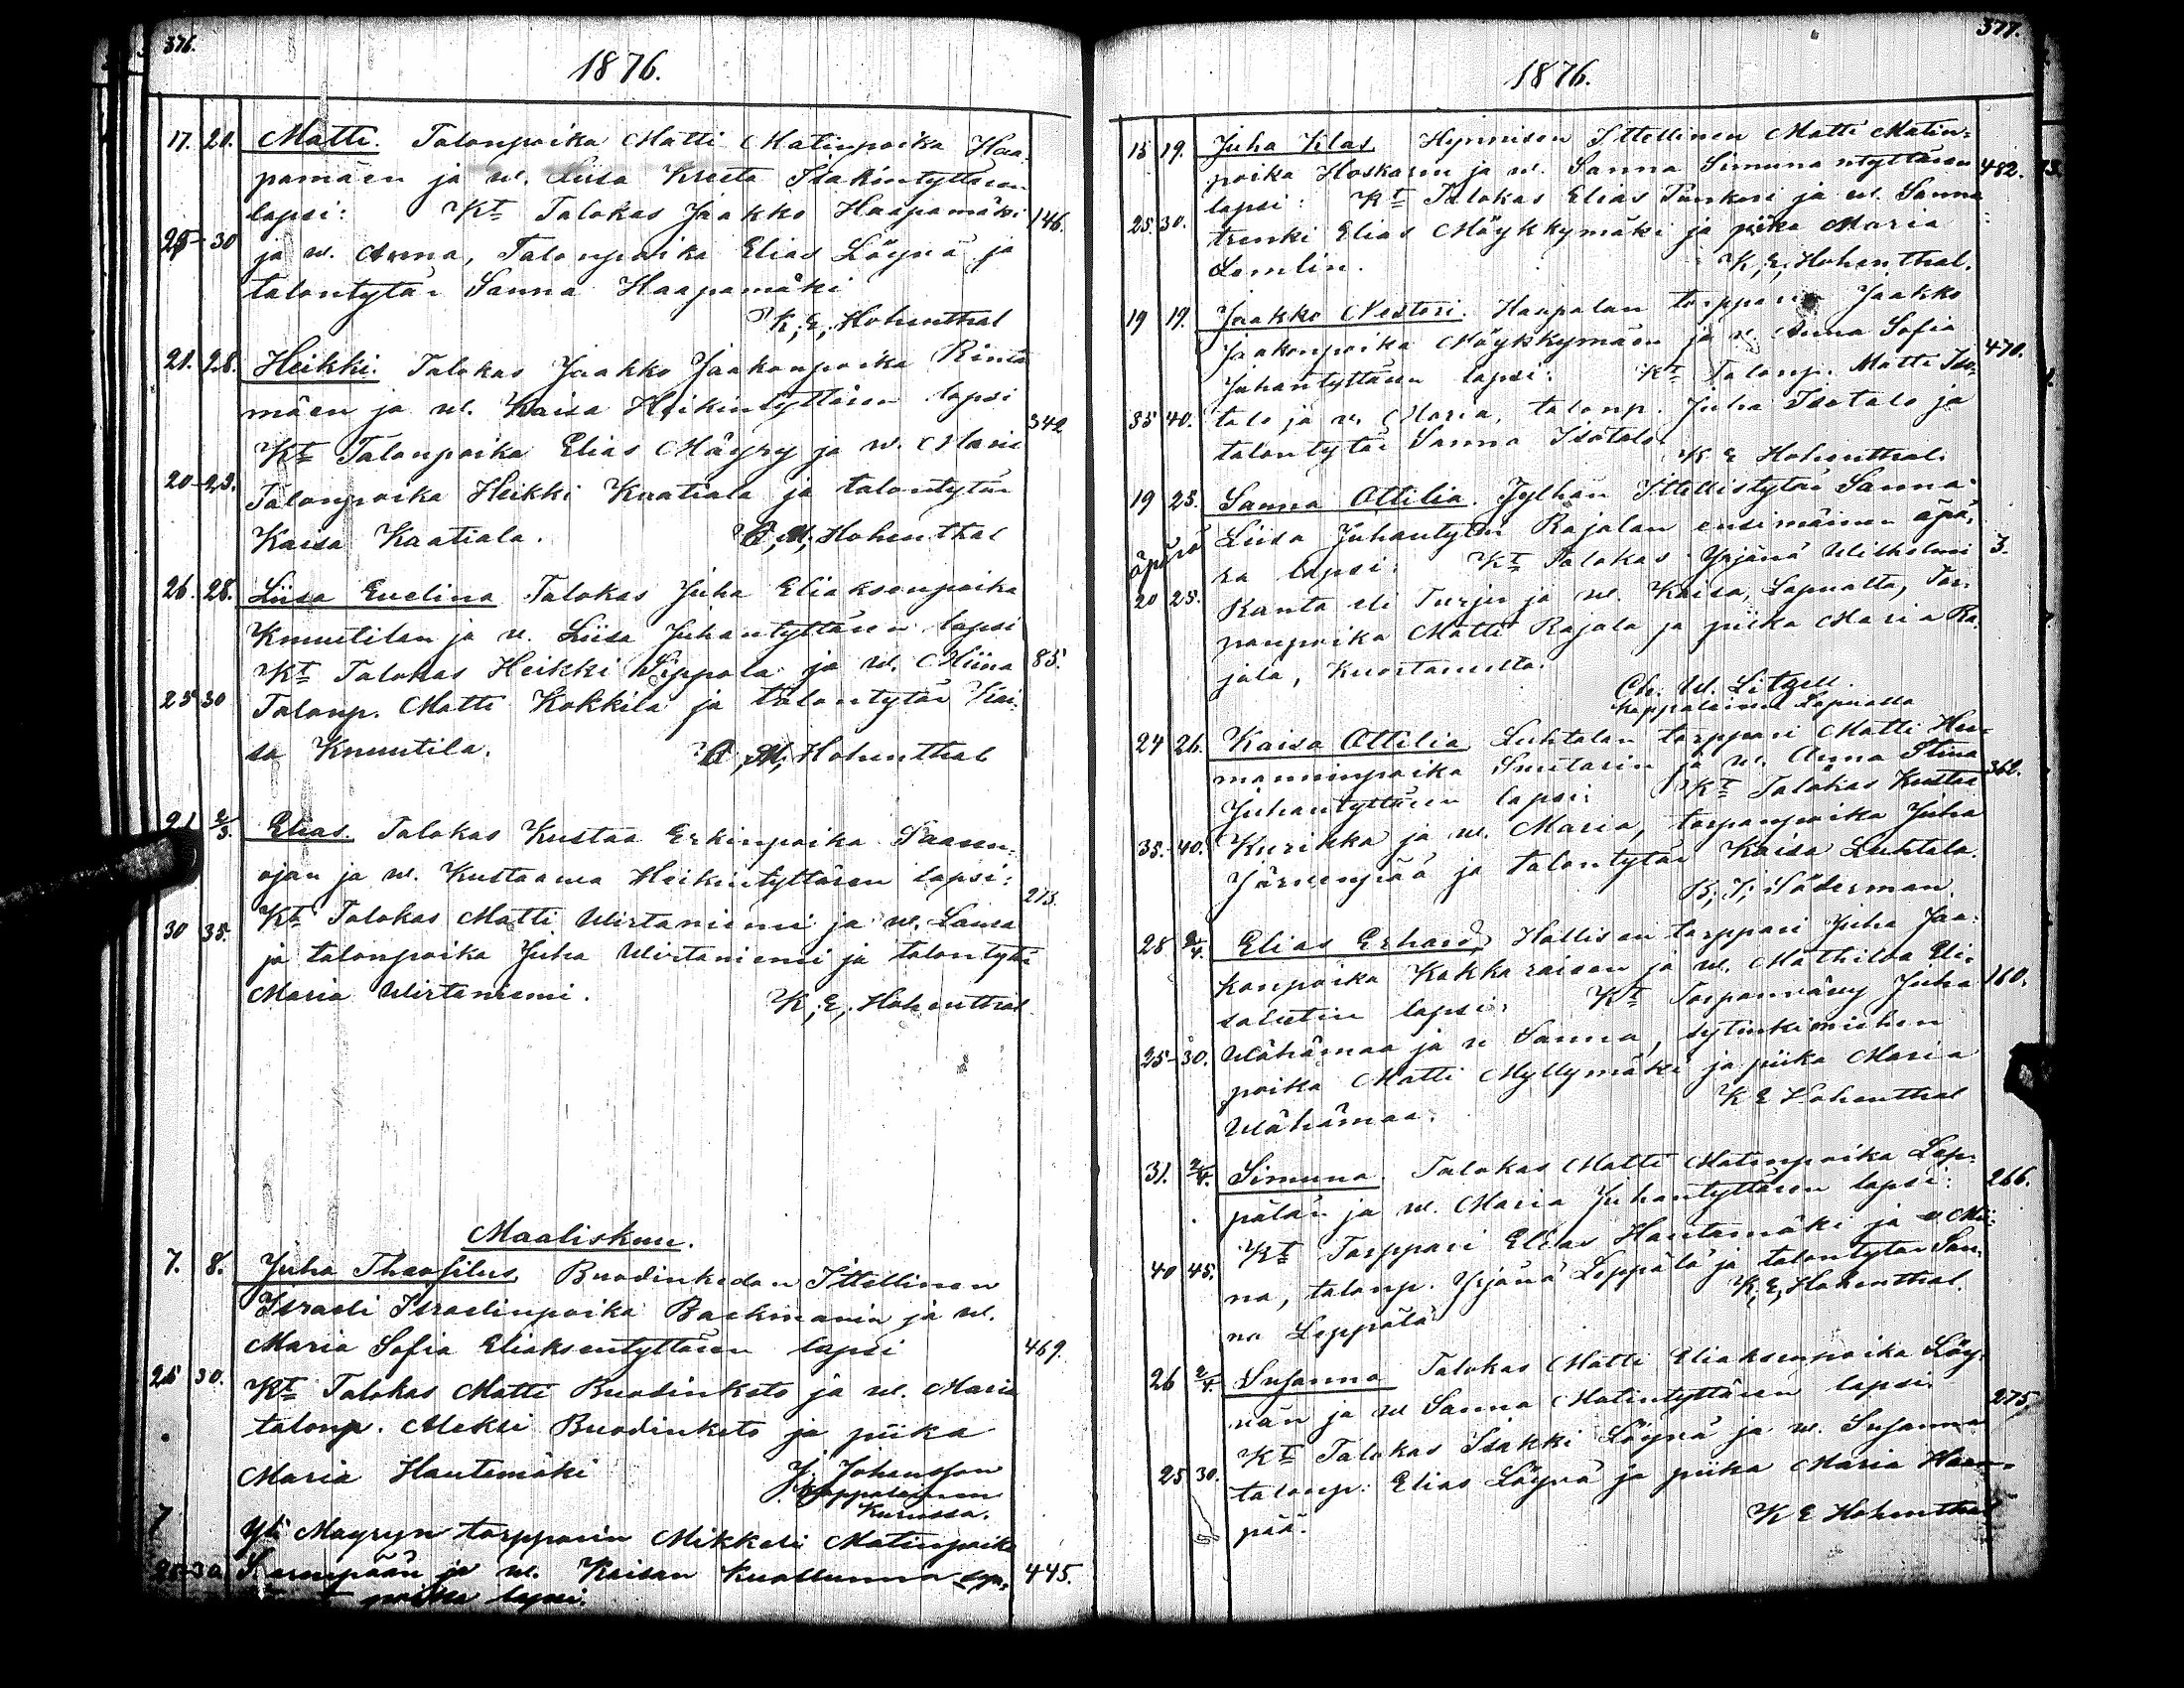 376.
1876.
17. 20. Matti. Talonpoika Matti Matinpoika Haa-
pamäen ja w. Liisa Kreeta Isakintyttären
lapsi: Kt Talokas Jaakko Haapamäki 146.
25-30 ja w. Anna, Talonpoika Elias Löynä ja
talontytär Sanna Haapamäki
K. E. Hohenthal
21. 28. Heikki. Talokas Jaakko Jaakonpoika Rinta
mäen ja w. Kaisa Heikintyttären lapsi 342
Kt Talonpoika Elias Mäyry ja w. Maria
20-23. Talonpoika Heikki Kaatiala ja talontytär
Kaisa Kaatiala. O. M. Hohenthal
26. 28. Liisa Evelina Talokas Juha Eliaksenpoika
Knuutilan ja w. Liisa Juhantyttären lapsi
Kt Talokas Heikki Sippola ja w. Miina 85.
25 30 Talonp. Matti Kokkila ja talontytär Kai-
sa Knuutila. O. M. Hohenthal
21 2/3. Elias. Talokas Kustaa Erkinpoika Paasen-
ojan ja w. Kustaawa Heikintyttären lapsi: 273.
30 35. Kt Talokas Matti Wirtaniemi ja w. Sanna
ja talonpoika Juha Wirtaniemi ja talontytär
Maria Wirtaniemi. K. E. Hohenthal
Maaliskuu.
7. 8. Juha Theofilus Buodinkedon Ittellinen
Israeli Israelinpoika Backmanin ja w.
Maria Sofia Eliaksentyttären lapsi 469.
25 30. Kt Talokas Matti Buodinketo ja w. Maria
talonp. Aleksi Buodinketo ja piika
Maria Hautamäki J. Johansson
Kappalainen
Kurussa.
7 Yli Mayryn torpparin Mikkeli Matinpoika
25-30 ja w. Kaisan kuolluena syn- 445.
t poika lapsi.
377.
1876.
15 19. Juha Klas. Hynnisen Ittellinen Matti Matin-
poika Hoskarin ja w. Sanna Simunantyttären 482.
lapsi: Kt Talokas Elias Punkari ja w. Sanna
25. 30. trenki Elias Mäykkymäki ja piika Maria
Lomlin. K. E. Hohenthal.
19 19. Jaakko Nestori. Haapalan torppari Jaakko
Jaakonpoika Mäykkymäen ja w. Anna Sofia 470.
Juhantyttären lapsi: Kt Talonp. Matti Iso-
35 40. talo ja w. Maria, talonp. Juha Isotalo ja
talontytär Sanna Isotalo
K E Hohenthal.
19 25. Sanna Ottilia. Jylhän Ittellistytär Sanna
äpärä Liisa Juhantytär Rajalan ensimäinen äpä-
rä lapsi: Kt Talokas Yrjänä Wilhelmi 3.
20 25. Ranta eli Turja ja w. Kaisa, Lapualta, Tor-
panpoika Matti Rajala ja piika Maria Ra-
jala, Kuortaneelta.
Ch. W. Litzell.
Kappalainen Lapualla
24 26. Kaisa Ottilia Luhtalan torppari Matti Her-
manninpoika Smetarin ja w. Anna Stina
Juhantyttären lapsi: Kt Talokas Kustaa 362.
35. 40. Kurikka ja w. Maria, torpanpoika Juha
Järvenpää ja talontytär Kaisa Luhtala.
B. J. Söderman
28 2/4. Elias Erhard Hallisen torppari Juha Jaa-
konpoika Kakkaraisen ja w. Mathilda Eli-
sabetin lapsi: Kt Torpanvävy Juha 160.
25-30. Wähämaa ja w Sanna, sytinkimiehen
poika Matti Myllymäki ja piika Maria
Wähämaa. K E Hohenthal
31. 2/4. Simuna. Talokas Matti Matinpoika Lep-
pälän ja w. Maria Juhantyttären lapsi: 266.
Kt Torppari Elias Hautamäki ja w Mii-
40 45. na, talonp. Yrjänä Leppälä ja talontytär San-
na Leppälä K. E. Hohenthal.
26 2/4. Susanna Talokas Matti Eliaksenpoika Löy-
nän ja w Sanna Matintyttären lapsi. 275
Kt Talokas Isakki Löynä ja w. Susanna
25 30. talonp. Elias Löynä ja piika Maria Haan-
pää. K E Hohenthal